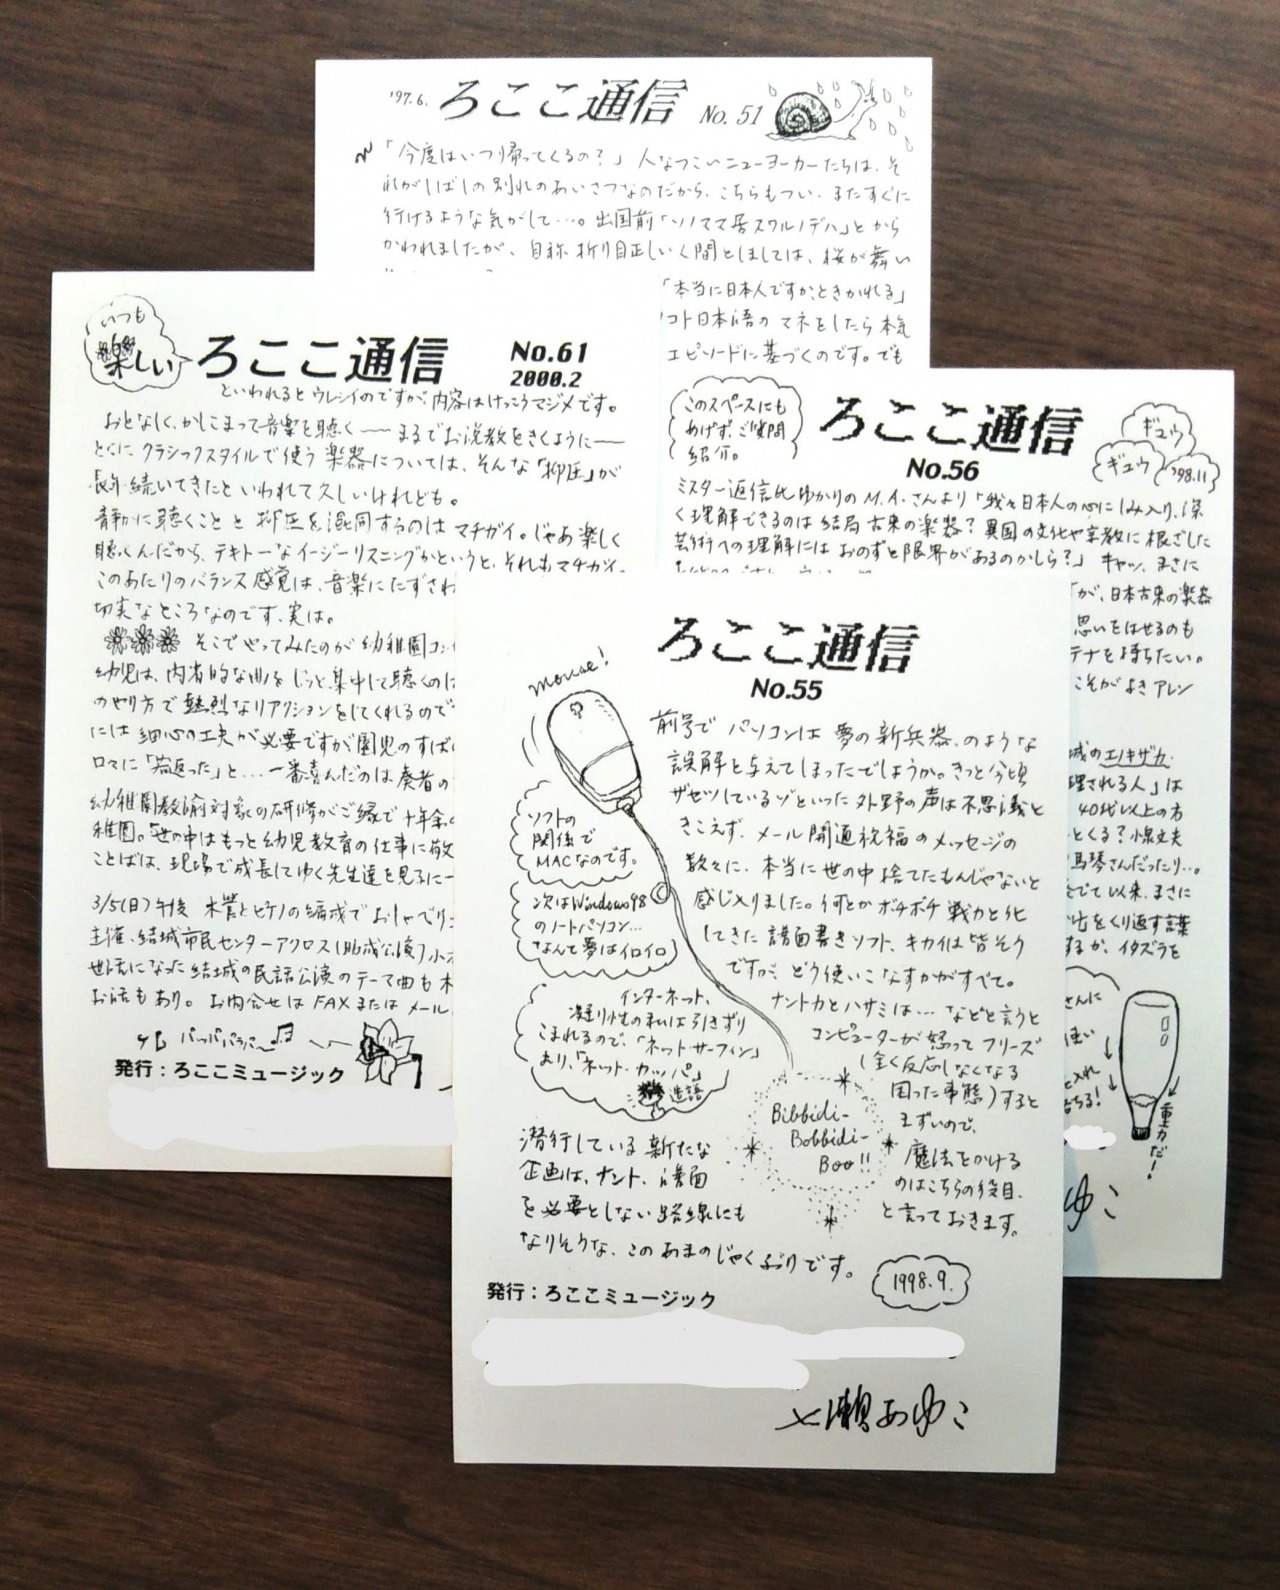 '97.6. ろここ通信 No. 51
「今度はいつ帰ってくるの？」 人なつこいニューヨーカーたちは、そ
れがしばしの別れのあいさつなのだから、こちらもつい、またすぐに
行けるような気がして…。出国前「ソノママ居スワルノデハ」とから
かわれましたが、自称 折り目正しい人間としましては、桜が舞い
「本当に日本人ですか、ときかれる」
コト日本語のマネをしたら本気
エピソードに基づくのです。でも
いつも
楽しい
ろここ通信
No.61
2000.2
といわれるとウレシイのですが、内容はけっこうマジメです。
おとなしく、かしこまって音楽を聴く――まるでお説教をきくように――
とくにクラシックスタイルで使う楽器については、そんな「抑圧」が
長年続いてきたといわれて久しいけれども。
静かに聴くことと抑圧を混同するのはマチガイ。じゃあ楽しく
聴くんだから、テキトーなイージーリスニングかというと、それもマチガイ。
このあたりのバランス感覚は、音楽にたずさわ
切実なところなのです、実は。
そこでやってみたのが幼稚園コン
幼児は、内省的な曲をじっと集中して聴くのに
のやり方で熱烈なリアクションをしてくれるので
には細心の工夫が必要ですが園児のすばい
口々に「若返った」と…一番喜んだのは奏者の
幼稚園教諭対象の研修がご縁で十年余
稚園。「世の中はもっと幼児教育の仕事に敬
ことばは、現場で成長してゆく先生達を見るに一
3/5(日)午後 木管とピアノの編成でおしゃべりコ
主催、結城市民センターアクロス(助成公演)
世話になった結城の民話公演のテーマ曲も木
お話もあり。 お問合せは FAX または メール
パッパパラパ〜
発行：ろここミュージック
このスペースにも
めげず、ご質問
紹介。
ろここ通信
No.56
ギュウ
ギュウ
'98.11
ミスター返信比ゆかりのM.A.さんより「我々日本人の心にしみ入り、深
く理解できるのは結局古来の楽器？異国の文化や宗教に根ざした
芸術への理解にはおのずと限界があるのかしら？」 キャッ、まさに
が、日本古来の楽器
思いをはせるのも
テナを持ちたい。
こそがよきアレン
城のエノキザカ
理される人」は
40代以上の方
とくる？小泉丈夫
馬琴さんだったり…。
をでて以来、まさに
出をくり返す言葉
するか、イタズラを
さんに
使い
と入れ
落ちる！
重力だ！
ゆこ
ろここ通信
No.55
mouse!
前号で パソコンは 夢の新兵器、のような
誤解を与えてしまったでしょうか。きっと今頃
ザセツしているゾといった外野の声は不思議と
きこえず、メール開通祝福のメッセージの
数々に、本当に世の中捨てたもんじゃないと
感じ入りました。何とかボチボチ戦力と化
してきた譜面書きソフト、キカイは皆そう
ですが、どう使いこなすかがすべて。
ナントカとハサミは… などと言うと
コンピューターが怒ってフリーズ
(全く反応しなくなる
困った事態)すると
まずいので、
魔法をかける
のはこちらの役目、
と言っておきます。
ソフトの
関係で
MACなのです。
次はWindows98
のノートパソコン…
なんて夢はイロイロ
インターネット、
凝り性の私は引きずり
こまれるので、「ネットサーフィン」
より、「ネット・カッパ」
造語
Bibbidi-
Bobbidi-
Boo!!
潜行している新たな
企画は、ナント、譜面
を必要としない路線にも
なりそうな、このあまのじゃくぶりです。
1998.9.
発行：ろここミュージック
七瀬あゆこ